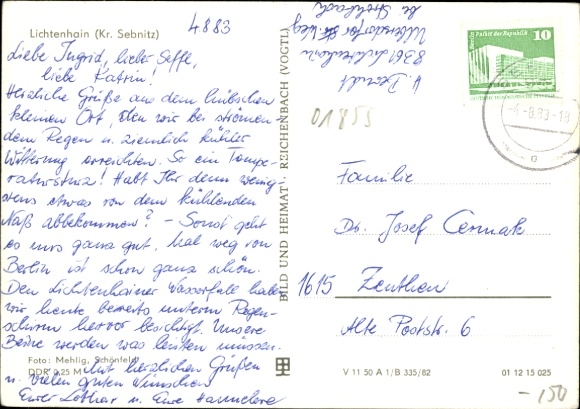 Lichtenhain (Kr. Sebnitz)
4.8.83
Liebe Ingrid, lieber Seffe,
liebe Katrin!
Herzliche Grüße aus dem hübschen
kleinen Ort, den wir bei strömen-
dem Regen u. ziemlich kühler
Witterung erreichten. So ein Tempe-
ratursturz! Habt Ihr denn wenig-
stens etwas von dem kühlenden
Naß abbekommen? - Sonst geht
es uns ganz gut. Mal weg von
Berlin ist schon ganz schön.
Den Lichtenhainer Wasserfall haben
wir heute bereits unterm Regen-
schirm hervor besichtigt. Unsere
Beine werden was leisten müssen.
Mit herzlichen Grüßen
u. vielen guten Wünschen
Euer Lothar u. Eure Hannelore
Foto: Mehlig, Schönfeld
DDR 0,25 M
BILD UND HEIMAT · REICHENBACH (VOGTL)
8361 Lichtenhain
01855
Berlin Palast der Republik
10
-8.83-18
Familie
Dr. Josef Cermak
1615 Zeuthen
Alte Poststr. 6
V 11 50 A 1/B 335/82
01 12 15 025
-150